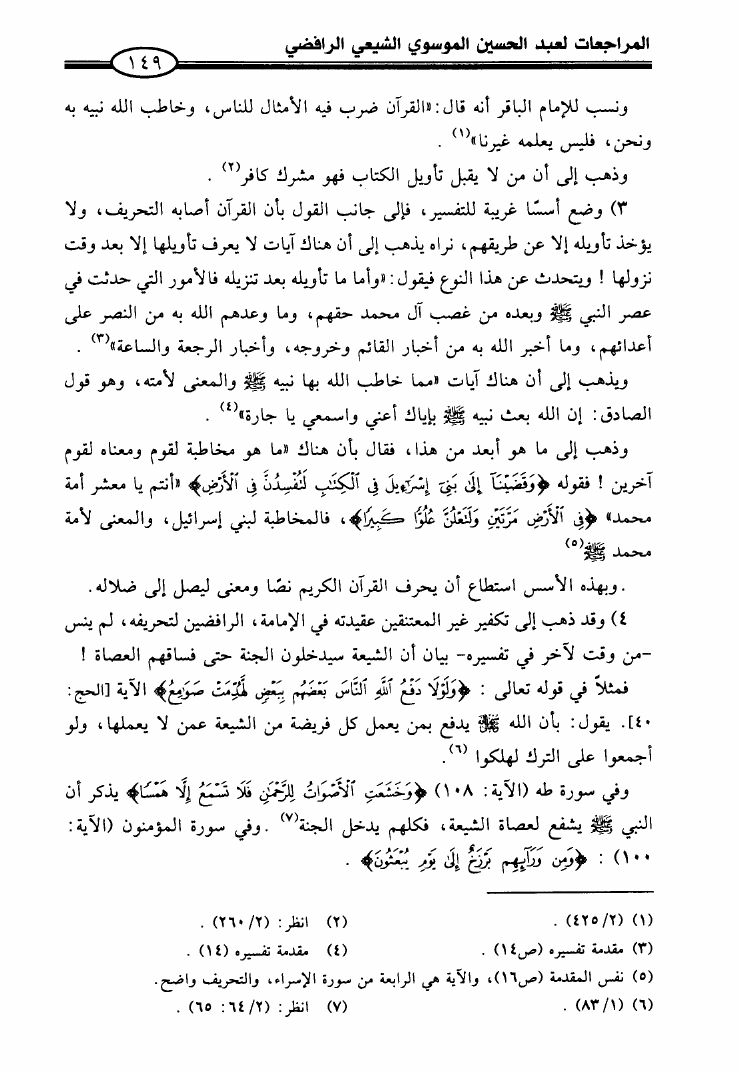 المراجعات لعبد الحسين الموسوي الشيعي الرافضي
١٤٩
ونسب للإمام الباقر أنه قال: «القرآن ضرب فيه الأمثال للناس، وخاطب الله نبيه به
ونحن، فليس يعلمه غيرنا»(١) .
وذهب إلى أن من لا يقبل تأويل الكتاب فهو مشرك كافر(٢) .
٣) وضع أسسًا غريبة للتفسير، فإلى جانب القول بأن القرآن أصابه التحريف، ولا
يؤخذ تأويله إلا عن طريقهم، نراه يذهب إلى أن هناك آيات لا يعرف تأويلها إلا بعد وقت
نزولها ! ويتحدث عن هذا النوع فيقول: «وأما ما تأويله بعد تنزيله فالأمور التي حدثت في
عصر النبي ﷺ وبعده من غصب آل محمد حقهم، وما وعدهم الله به من النصر على
أعدائهم، وما أخبر الله به من أخبار القائم وخروجه، وأخبار الرجعة والساعة»(٣) .
ويذهب إلى أن هناك آيات «مما خاطب الله بها نبيه ﷺ والمعنى لأمته، وهو قول
الصادق: إن الله بعث نبيه ﷺ بإياك أعني واسمعي يا جارة»(٤) .
وذهب إلى ما هو أبعد من هذا، فقال بأن هناك «ما هو مخاطبة لقوم ومعناه لقوم
آخرين ! فقوله ﴿وَقَضَيْنَآ إِلَىٰ بَنِىٓ إِسْرَٰٓءِيلَ فِى ٱلْكِتَٰبِ لَتُفْسِدُنَّ فِى ٱلْأَرْضِ﴾ «أنتم يا معشر أمة
محمد» ﴿فِى ٱلْأَرْضِ مَرَّتَيْنِ وَلَتَعْلُنَّ عُلُوًّا كَبِيرًا﴾، فالمخاطبة لبني إسرائيل، والمعنى لأمة
محمد ﷺ(٥)
.وبهذه الأسس استطاع أن يحرف القرآن الكريم نصًا ومعنى ليصل إلى ضلاله.
٤) وقد ذهب إلى تكفير غير المعتنقين عقيدته في الإمامة، الرافضين لتحريفه، لم ينس
-من وقت لآخر في تفسيره- بيان أن الشيعة سيدخلون الجنة حتى فساقهم العصاة !
فمثلاً في قوله تعالى : ﴿وَلَوْلَا دَفْعُ ٱللَّهِ ٱلنَّاسَ بَعْضَهُم بِبَعْضٍ لَّهُدِّمَتْ صَوَٰمِعُ﴾ الآية [الحج:
٤٠]. يقول: بأن الله ﷻ يدفع بمن يعمل كل فريضة من الشيعة عمن لا يعملها، ولو
أجمعوا على الترك لهلكوا (٦).
وفي سورة طه (الآية: ١٠٨) ﴿وَخَشَعَتِ ٱلْأَصْوَاتُ لِلرَّحْمَٰنِ فَلَا تَسْمَعُ إِلَّا هَمْسًا﴾ يذكر أن
النبي ﷺ يشفع لعصاة الشيعة، فكلهم يدخل الجنة(٧) .وفي سورة المؤمنون (الآية:
١٠٠) : ﴿وَمِن وَرَآئِهِم بَرْزَخٌ إِلَىٰ يَوْمِ يُبْعَثُونَ﴾ .
(١) (٤٢٥/٢) .
(٢) انظر: (٢٦٠/٢) .
(٣) مقدمة تفسيره (ص١٤) .
(٤) مقدمة تفسيره (١٤) .
(٥) نفس المقدمة (ص١٦)، والآية هي الرابعة من سورة الإسراء، والتحريف واضح.
(٦) (٨٣/١) .
(٧) انظر: (٦٤/٢: ٦٥) .